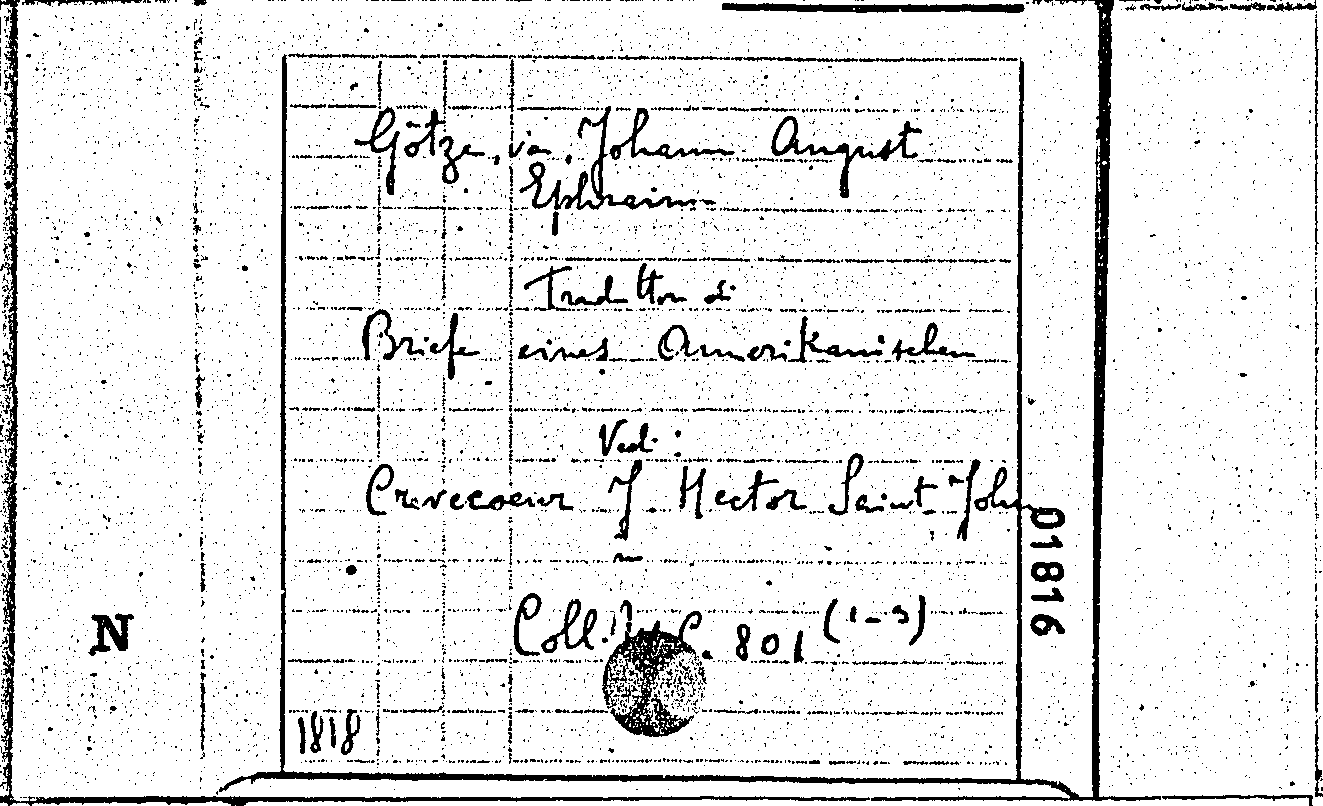 Götze, von, Johann August
Ephraim
Traduttore di
Briefe eines Amerikanischen
Ved. :
Crevecoeur J. Hector Saint John
01816
N
Coll. 801 (1-3)
1818